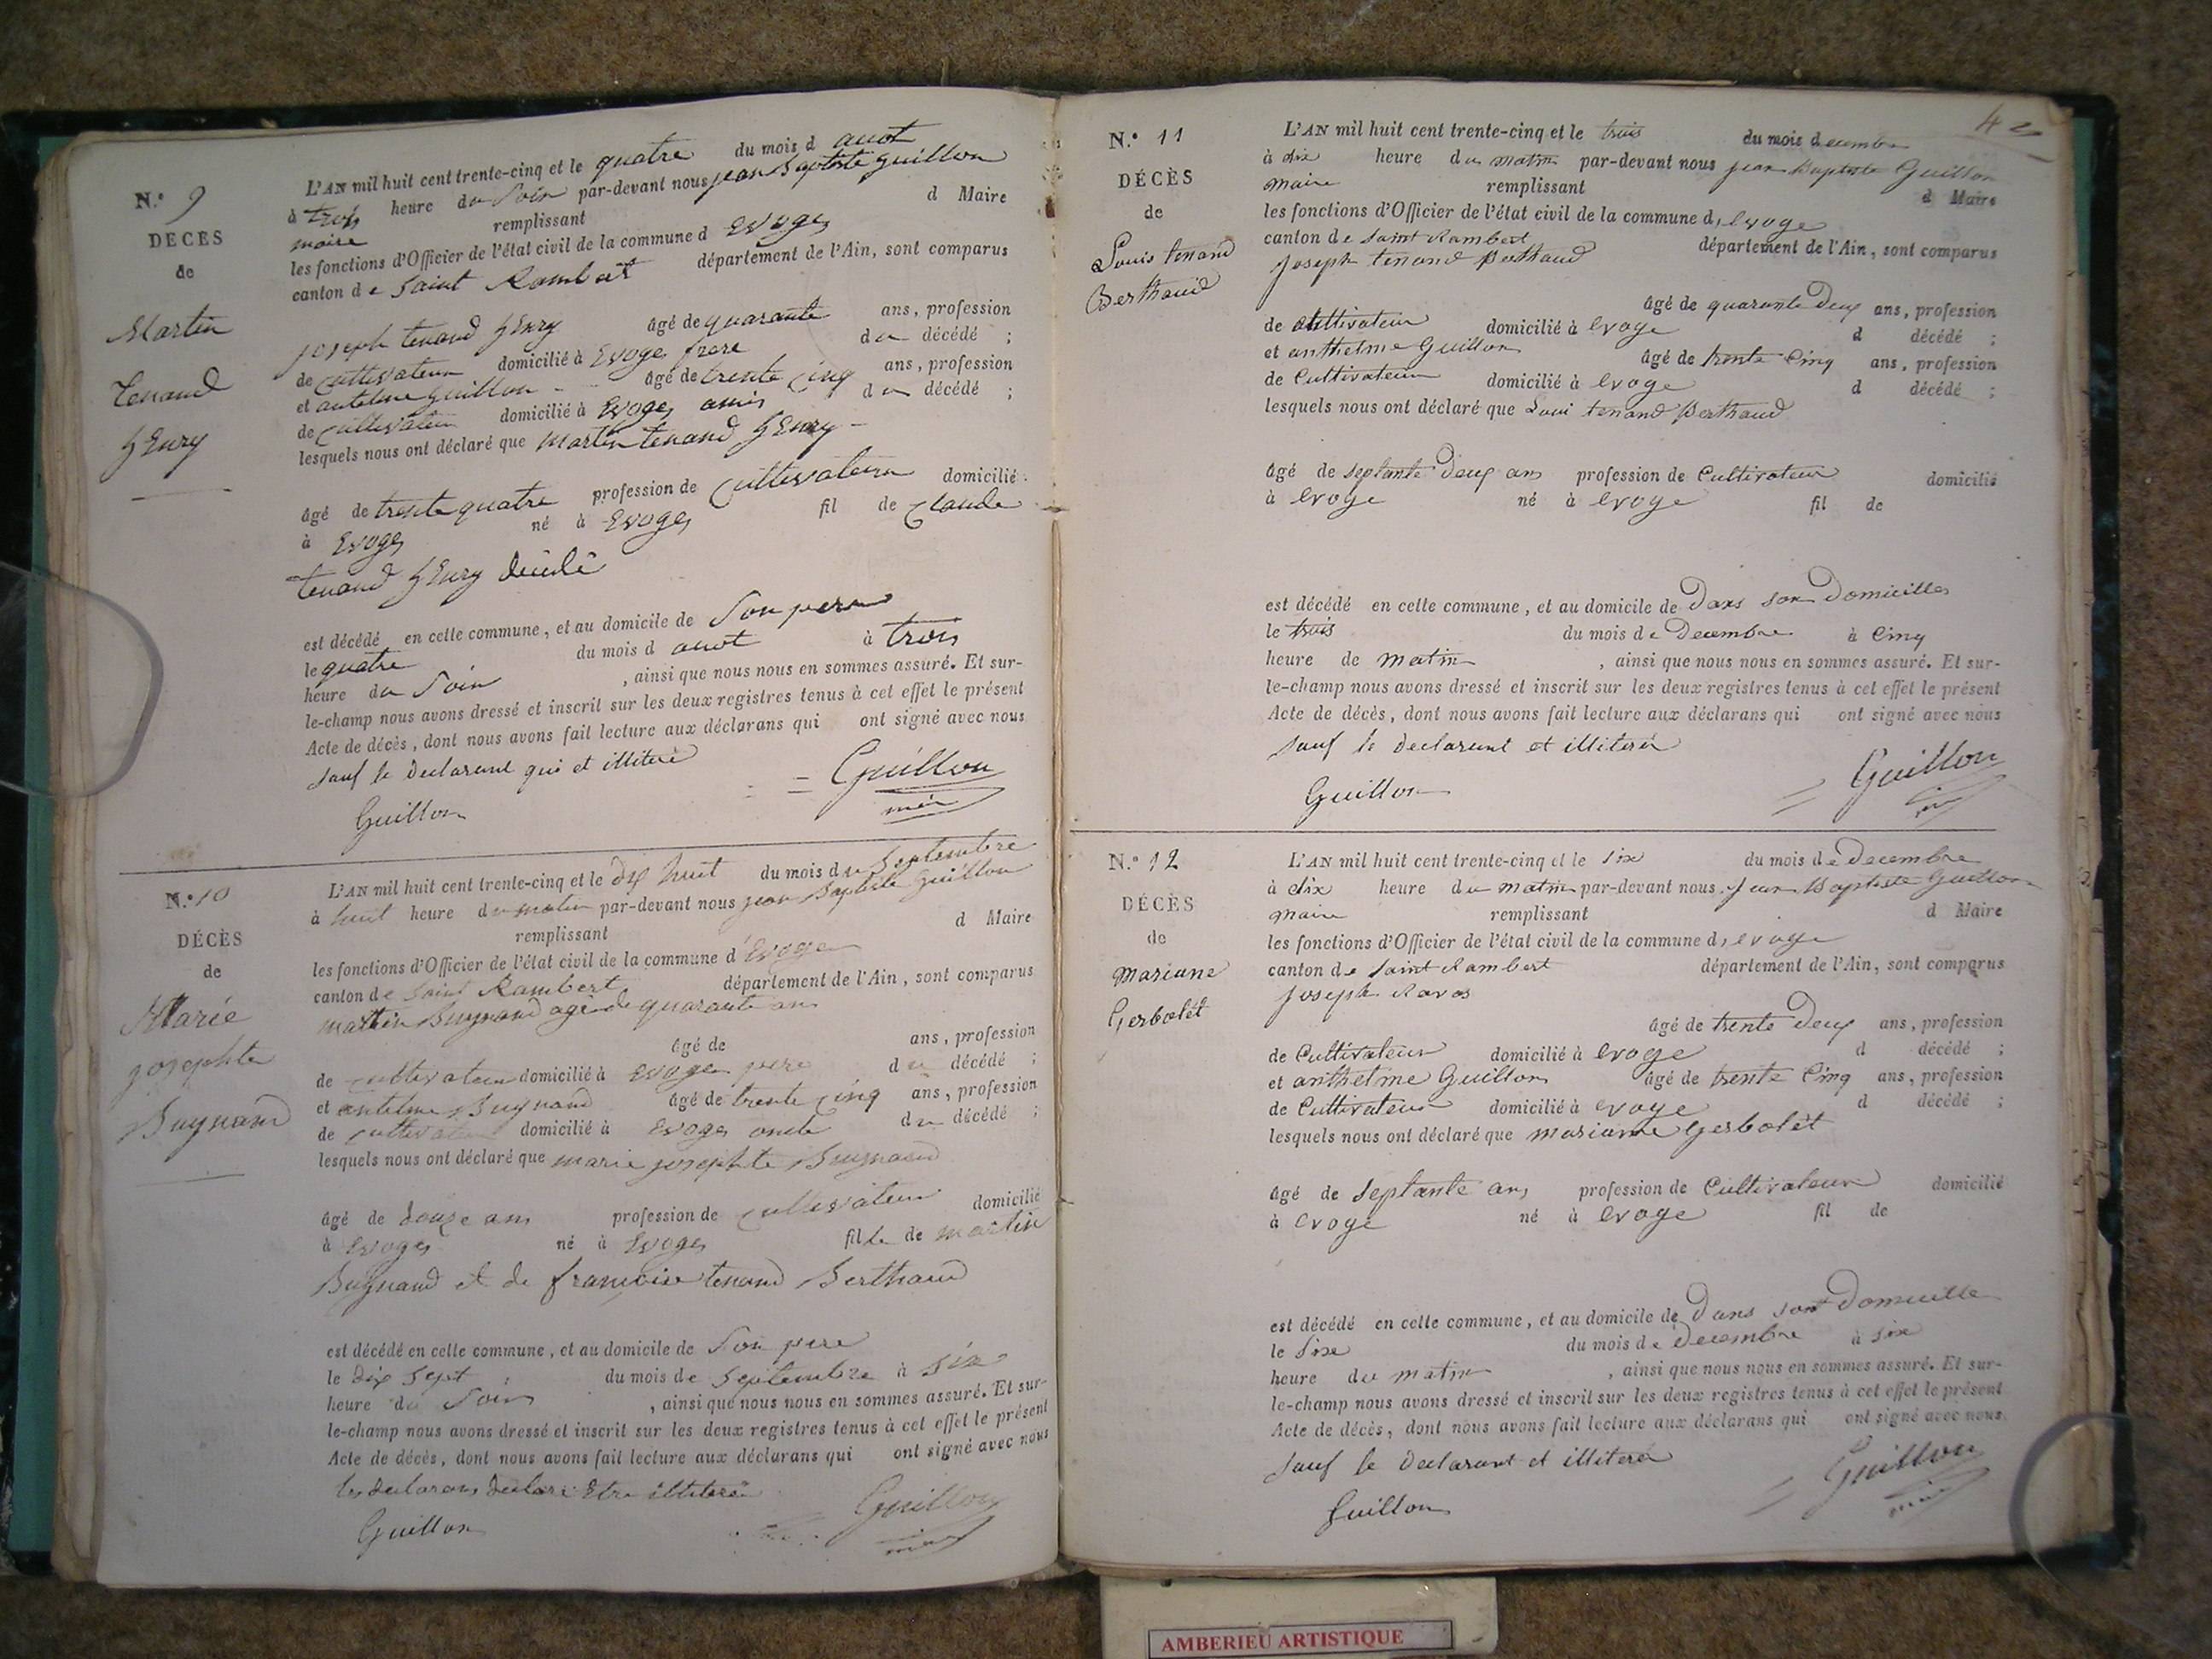 N.° 9
DÉCÈS
de
Martin
Tenand
hEnry
L'AN mil huit cent trente-cinq et le quatre du mois d auot
à trois heure du Soir par-devant nous jean Baptiste guillon
maire remplissant d Maire
les fonctions d'Officier de l'état civil de la commune d Evoges
canton de Saint Rambert département de l'Ain, sont comparus
joseph tenand hEnry âgé de quarante ans, profession
de Cultivateur domicilié à Evoges frere du décédé ;
et antelme guillon âgé de trente cinq ans, profession
de Cultivateur domicilié à Evoges amis du décédé ;
lesquels nous ont déclaré que martin tenand hEnry
âgé de trente quatre profession de Cultivateur domicilié
à Evoges né à Evoges fil de Claude
tenand hEnry
est décédé en cette commune, et au domicile de Son pere
le quatre du mois d auot à trois
heure du Soir , ainsi que nous nous en sommes assuré. Et sur-
le-champ nous avons dressé et inscrit sur les deux registres tenus à cet effet le présent
Acte de décès, dont nous avons fait lecture aux déclarans qui ont signé avec nous
Sauf le Declarant qui et illiteré
Guillon Guillon
N.° 10
DÉCÈS
de
Marie
josephte
Buynand
L'AN mil huit cent trente-cinq et le dix huit du mois de Septembre
à huit heure du matin par-devant nous jean Baptiste guillon
remplissant d Maire
les fonctions d'Officier de l'état civil de la commune d Evoges
canton de Saint Rambert département de l'Ain, sont comparus
martin Buynand agé de quarante ans
âgé de ans, profession
de cultivateur domicilié à Evoges pere du décédé ;
et antelme Buynand âgé de trente cinq ans, profession
de cultivateur domicilié à Evoges oncle du décédé ;
lesquels nous ont déclaré que marie josephte Buynand
âgé de douze ans profession de cultivateur domicilié
à Evoges né à Evoges fille de martin
Buynand et de francoise tenand Berthaud
est décédé en cette commune, et au domicile de Son pere
le dix Sept du mois de Septembre à Six
heure du Soir , ainsi que nous nous en sommes assuré. Et sur-
le-champ nous avons dressé et inscrit sur les deux registres tenus à cet effet le présent
Acte de décès, dont nous avons fait lecture aux déclarans qui ont signé avec nous
les declarans declare Etre illiteré
Guillon Guillon
42
N.° 11
DÉCÈS
de
Louis tenand
Berthaud
L'AN mil huit cent trente-cinq et le trois du mois decembre
à dix heure du matin par-devant nous jean Baptiste Guillon
maire remplissant d Maire
les fonctions d'Officier de l'état civil de la commune d, evoge
canton de Saint Rambert département de l'Ain, sont comparus
joseph tenand Berthaud
âgé de quarante Deux ans, profession
de Cultivateur domicilié à evoge d décédé ;
et anthelme Guillon âgé de trente Cinq ans, profession
de Cultivateur domicilié à evoge d décédé ;
lesquels nous ont déclaré que Loui tenand Berthaud
âgé de Septante Deux ans profession de Cultivateur domicilié
à evoge né à evoge fil de
est décédé en cette commune, et au domicile de Dans son Domicille
le trois du mois de Decembre à Cinq
heure de matin , ainsi que nous nous en sommes assuré. Et sur-
le-champ nous avons dressé et inscrit sur les deux registres tenus à cet effet le présent
Acte de décès, dont nous avons fait lecture aux déclarans qui ont signé avec nous
Sauf le declarant et illiteré
Guillon Guillon
N.° 12
DÉCÈS
de
Mariane
Gerbolét
L'AN mil huit cent trente-cinq et le Six du mois de Decembre
à dix heure du matin par-devant nous jean Baptiste Guillon
maire remplissant d Maire
les fonctions d'Officier de l'état civil de la commune d, evoge
canton de Saint Rambert département de l'Ain, sont comparus
joseph Ravos
âgé de trente Deux ans, profession
de Cultivateur domicilié à evoge d décédé ;
et anthelme Guillon âgé de trente Cinq ans, profession
de Cultivateur domicilié à evoge d décédé ;
lesquels nous ont déclaré que Mariane Gerbolét
âgé de Septante ans profession de Cultivateur domicilié
à evoge né à evoge fil de
est décédé en cette commune, et au domicile de Dans son Domicille
le Six du mois de Decembre à Six
heure du matin , ainsi que nous nous en sommes assuré. Et sur-
le-champ nous avons dressé et inscrit sur les deux registres tenus à cet effet le présent
Acte de décès, dont nous avons fait lecture aux déclarans qui ont signé avec nous
Sauf le Declarant et illiteré
Guillon Guillon
AMBERIEU ARTISTIQUE